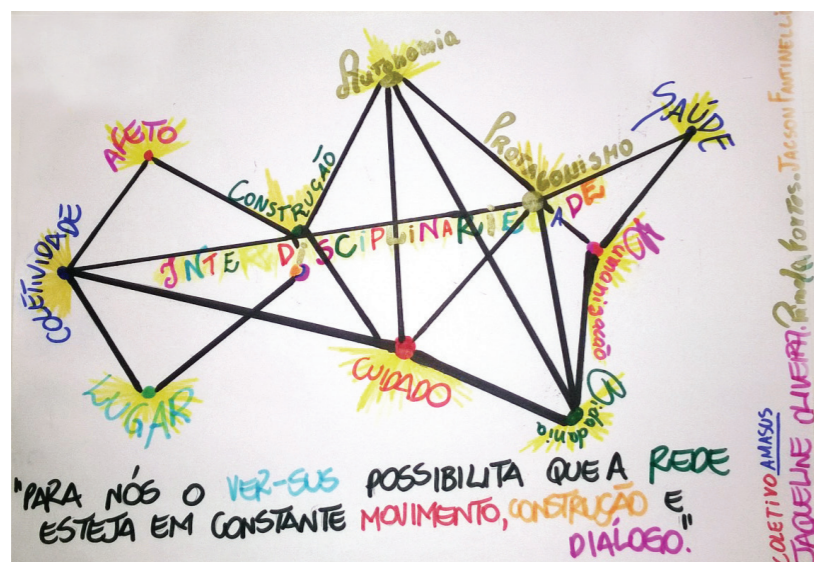 Autonomia
SAÚDE
AFETO
PROTAGONISMO
CONSTRUÇÃO
COLETIVIDADE
INTERDISCIPLINARIEDADE
Humanização
CUIDADO
LUGAR
Cidadania
"PARA NÓS O VER-SUS POSSIBILITA QUE A REDE
ESTEJA EM CONSTANTE MOVIMENTO, CONSTRUÇÃO E
DIÁLOGO."
COLETIVO AMASUS
JAQUELINE OLIVEIRA. FORTES. JACSON FANTINELLI